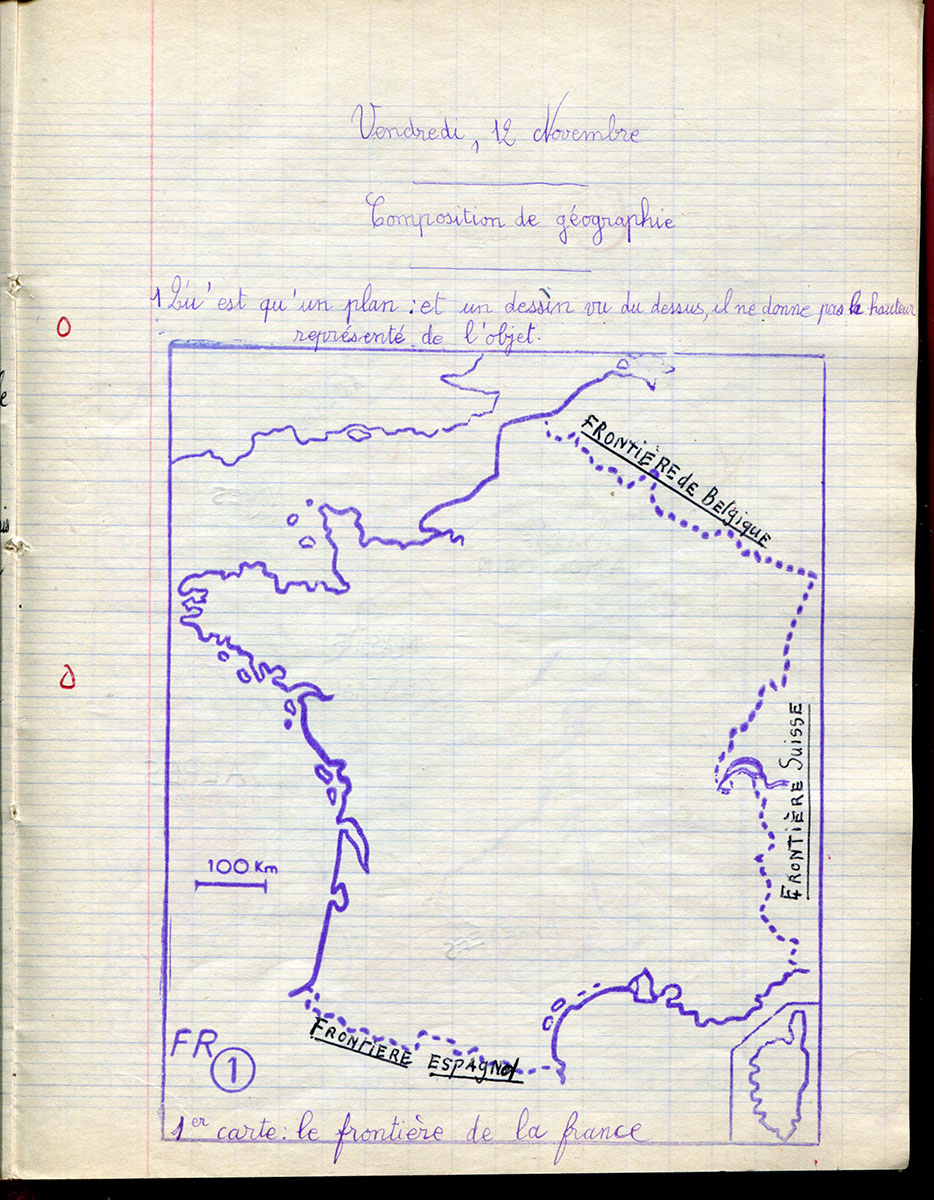 Vendredi, 12 Novembre
Composition de géographie
1 Qu'est qu'un plan : et un dessin vu du dessus, il ne donne pas la hauteur
représenté de l'objet.
FRONTIÈRE de BElgiquE
FRONTIÈRE SUISSE
100 Km
FRONTIERE ESPAGNol
FR 1
1er carte: le frontière de la france